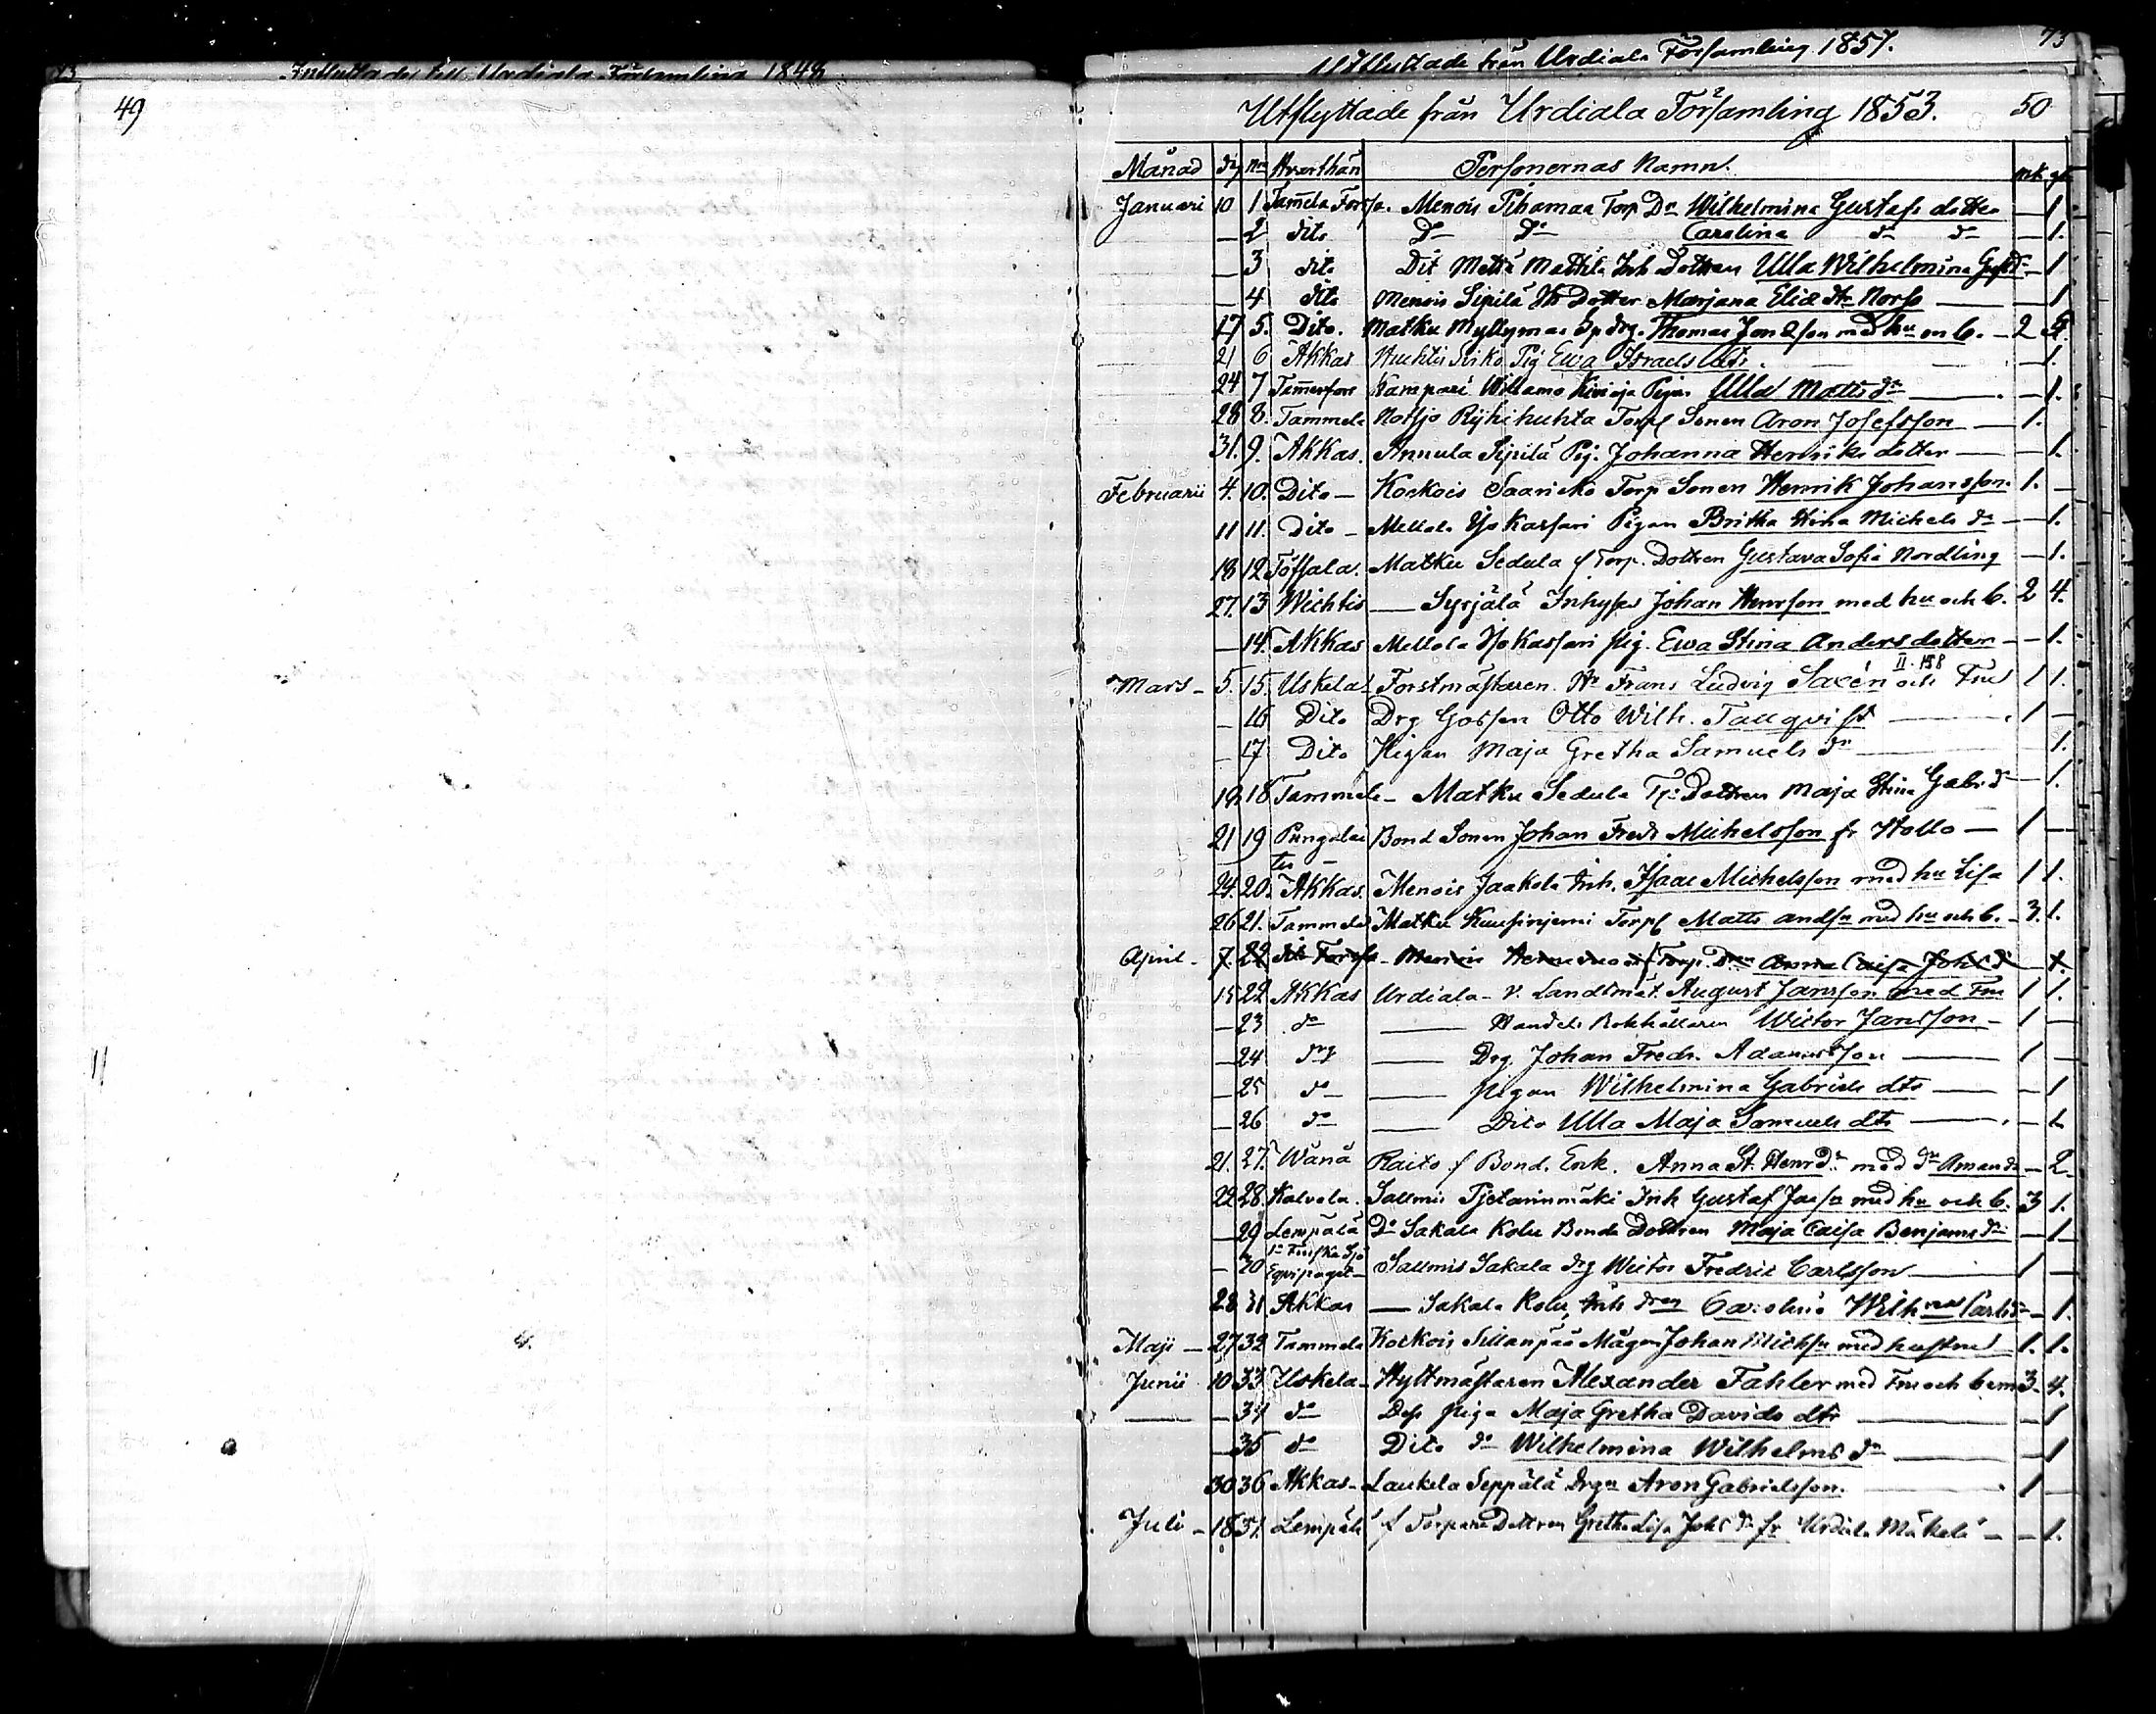 Inflyttade till Urdiala Församling 1848
49
Utflyttade från Urdiala Församling 1857. 73
Utflyttade från Urdiala Församling 1853. 50
Månad dag Nro Hvarthän Personernas Namn. mk qk
Januari 10 1 Tam̄ela Forssa. Menois Pihamaa Torp Dn Wilhelmina Gustafs dotter — 1
— 2 dito Do Do Carolina do do — 1.
— 3 dito Dit Mattila Inh Dottren Ulla Wilhelmina Gustfdr — 1
— 4 dito Menois Sipilä Dotter Marjana Elia Norss — 1
17 5. Dito. Matku Myllymaa Drg. Thomas Jonasson med hu en b. — 2
21 6 Akkas Huhtis Seiko Pig Ewa Israels dtr — 1.
24 7 Tam̄erfors Kampari Willamo Pigan Ulla Matts dr — 1.
28 8. Tammela Notsjo Ryhihuhta Torp Sonen Aron Josefsson — 1.
31. 9. Akkas. Annula Sipilä Pig. Johanna Henriks dotter — 1.
Februarii 4. 10. Dito — Koskois Saarisko Torp Sonen Henrik Johansson. 1. —
11 11. Dito — Mellola Yjokassari Pigan Britha Stina Michels dr — 1.
18 12 Töfsala. Matku Sedula f Torp. Dottren Gustava Sofia Nordling — 1.
27. 13 Wichtis — Syrjälä Inhyses Johan Henrsson med hu och b. 2 4.
— 14. Akkas Mellola Yjokassari pig. Ewa Stina Anders dotter — 1.
Mars — 5. 15. Uskela Forstmästaren Hr Frans Ludvig Saxén II. 158 och Fru 1 1.
— 16 Dito Drg Gossen Otto Wilh. Tallqvist — 1 —
— 17 Dito Pigan Maja Gretha Samuels dr — 1.
19 18 Tammela — Matku Sedula Tp Dottren Maja Stina Gabr. dr — 1.
21 19 Pungalai tis Bond Sonen Johan Fredr Michelsson fr Hollo — 1 —
24. 20. Akkas. Menois Jaakola Inh. Isaac Michelsson med hu Lisa 1 1.
26 21. Tammela Matku Kuusinjemi Torp Matts Andsn med hu och b. — 3. 1.
April — 7. 22 dito Forssa — Menois Torp. Drn Anna Caisa Johs dr — 1.
15 22 Akkas Urdiala — v. Landtmät. August Jansson med Fru 1 1.
— 23 do — Handels Bokhållaren Wictor Jansson — 1 —
— 24 do — Drg. Johan Fredr. Adamsson — 1 —
— 25 do — pigan Wilhelmina Gabriels dtr — 1
— 26 do — Dito Ulla Maja Samuels dtr — 1
21. 27. Wånå Raito f Bond. Enk. Anna St. Henr Dr med dr Amanda — 2
22 28. Kalvola. Sallmis Pjetarinmäki Inh Gustaf Jacsn med hu och b. 3 1.
— 29 Lempälä Do Sakala Kolu Bonde Dottren Maja Caisa Benjams dr — 1
— 30 1a Finska Sjö Eqvipaget — Sallmis Sakala drg Wictor Fredric Carlsson — 1 —
28 31 Akkas — Sakala Kolu Inh Carolina Wilhna Carls dr — 1.
Maji — 27 32 Tammela Koskois Sillanpää Mågen Johan Michsn med hustru 1. 1.
Junii 10 33. Uskela — Hyttmästaren Alexander Fahler med Fru och barn 3. 4.
— 34 do Dess piga Maja Gretha Davids dtr — 1
— 35 do Dito do Wilhelmina Wilhelms dr — 1
30 36 Akkas — Laukela Seppälä Drgn Aron Gabrielsson. — 1 —
Juli — 18 37. Lempälä f Torpare Dottren Gretha Lisa Johs dr fr Urdiala Mäkelä — 1.